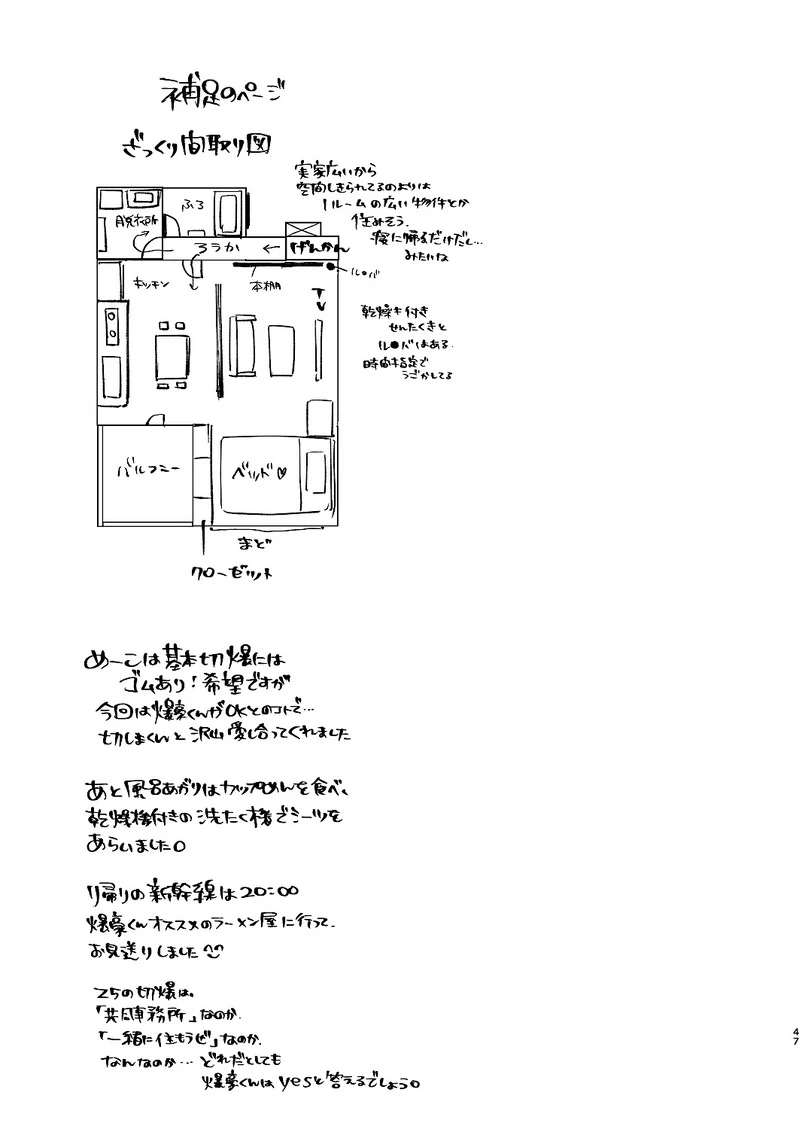 補足のページ
ざっくり間取り図
実家広いから
空間しきられてるのよりは
1ルームの広い物件とか
住みそう。
寝に帰るだけだし…
みたいな
ふろ
脱衣所
ろうか
←
げんかん
キッチン
本棚
ル●バ
乾燥キ付き
せんたくきと
ル●バはある。
時間指定で
うごかしてる
バルコニー
ベッド♡
まど
クローゼット
めーこは基本切爆には
ゴムあり!希望ですが
今回は爆豪くんがOKとのコトで…
切しまくんと沢山愛し合ってくれました
あと風呂あがりはカップめんを食べ、
乾燥機付きの洗たく様でシーツを
あらいました。
帰りの新幹線は20:00
爆豪くんオススメのラーメン屋に行って、
お見送りしました
25の切爆は。
「共同事務所」なのか。
「一緒に住もうぜ」なのか。
なんなのか…どれだとしても
爆豪くんはyesと答えるでしょう。
47